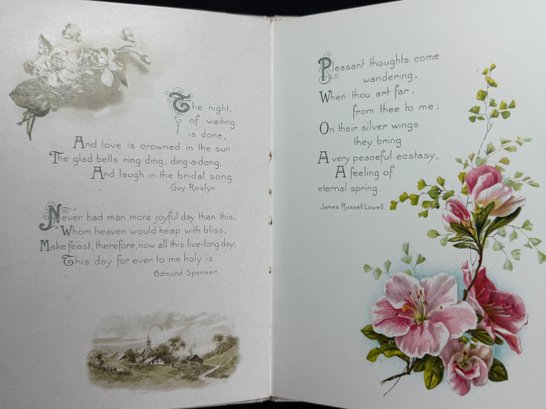 The night,
of waiting
is done,
And love is crowned in the sun:
The glad bells ring ding, ding-a-dong,
And laugh in the bridal song.
Guy Roslyn.
Never had man more joyful day than this,
Whom heaven would heap with bliss,
Make feast, therefore, now all this live-long day,
This day for ever to me holy is.
Edmond Spenser.
Pleasant thoughts come
wandering,
When thou art far,
from thee to me;
On their silver wings
they bring
A very peaceful ecstasy,
A feeling of
eternal spring.
James Russell Lowell.